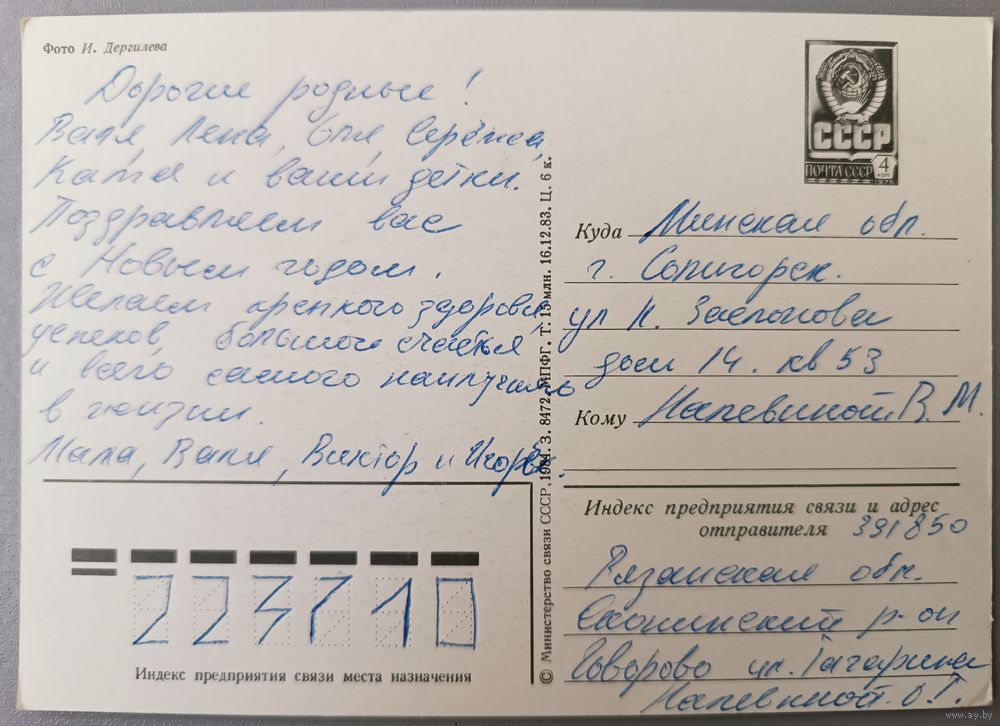 Фото И. Дергилева
Дорогие родные!
Валя, Лена, Оля, Серёжа,
Катя и ваши детки.
Поздравляем вас
с Новым годом.
Желаем крепкого здоровья,
успехов, большого счастья
и всего самого наилучшего
в жизни.
Мама, Валя, Виктор и Игорь.
СССР
ПОЧТА СССР
4
коп
1976
© Министерство связи СССР, 1984. З. 8472. МПФГ. Т. 15 млн. 16.12.83. Ц. 6 к.
Куда Минская обл.
г. Солигорск.
ул К. Заслонова
дом 14. кв 53
Кому Налевиной В. М.
Индекс предприятия связи и адрес
отправителя 391850
Рязанская обл.
Скопинский р-он
Говорово ул. Гагарина
Налевиной О. Г.
223710
Индекс предприятия связи места назначения
www.ay.by